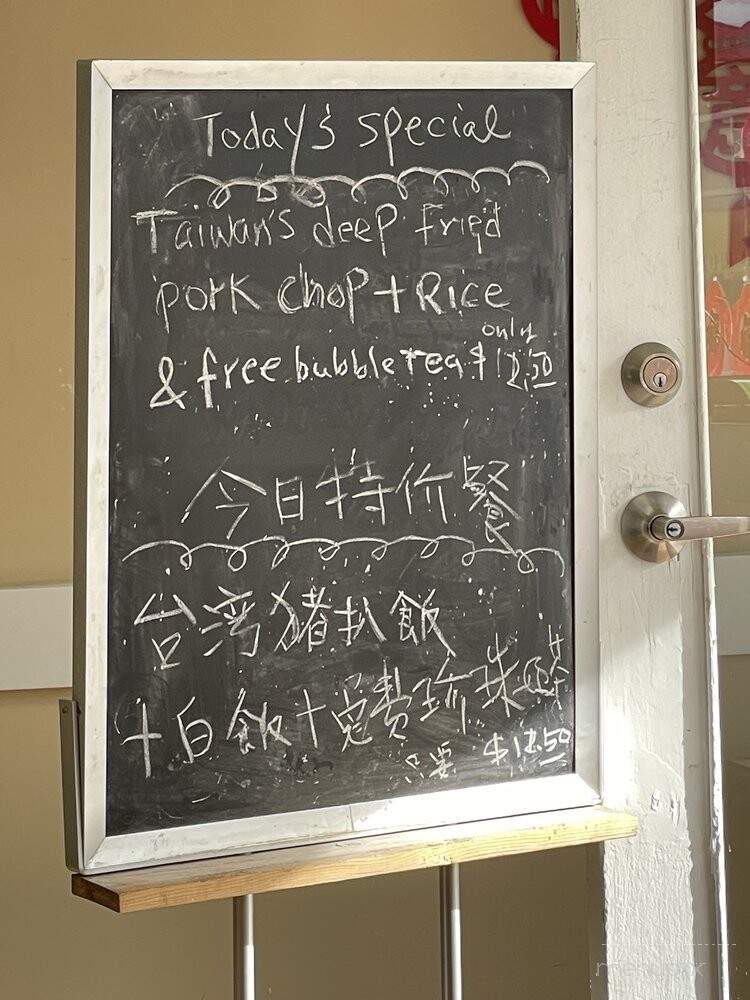 Today's special
Taiwan's deep fried
pork chop + Rice
only
& free bubble tea $12.50
今日特价餐
台湾猪扒飯
+白飯+免费珍珠奶茶
只要 $12.50